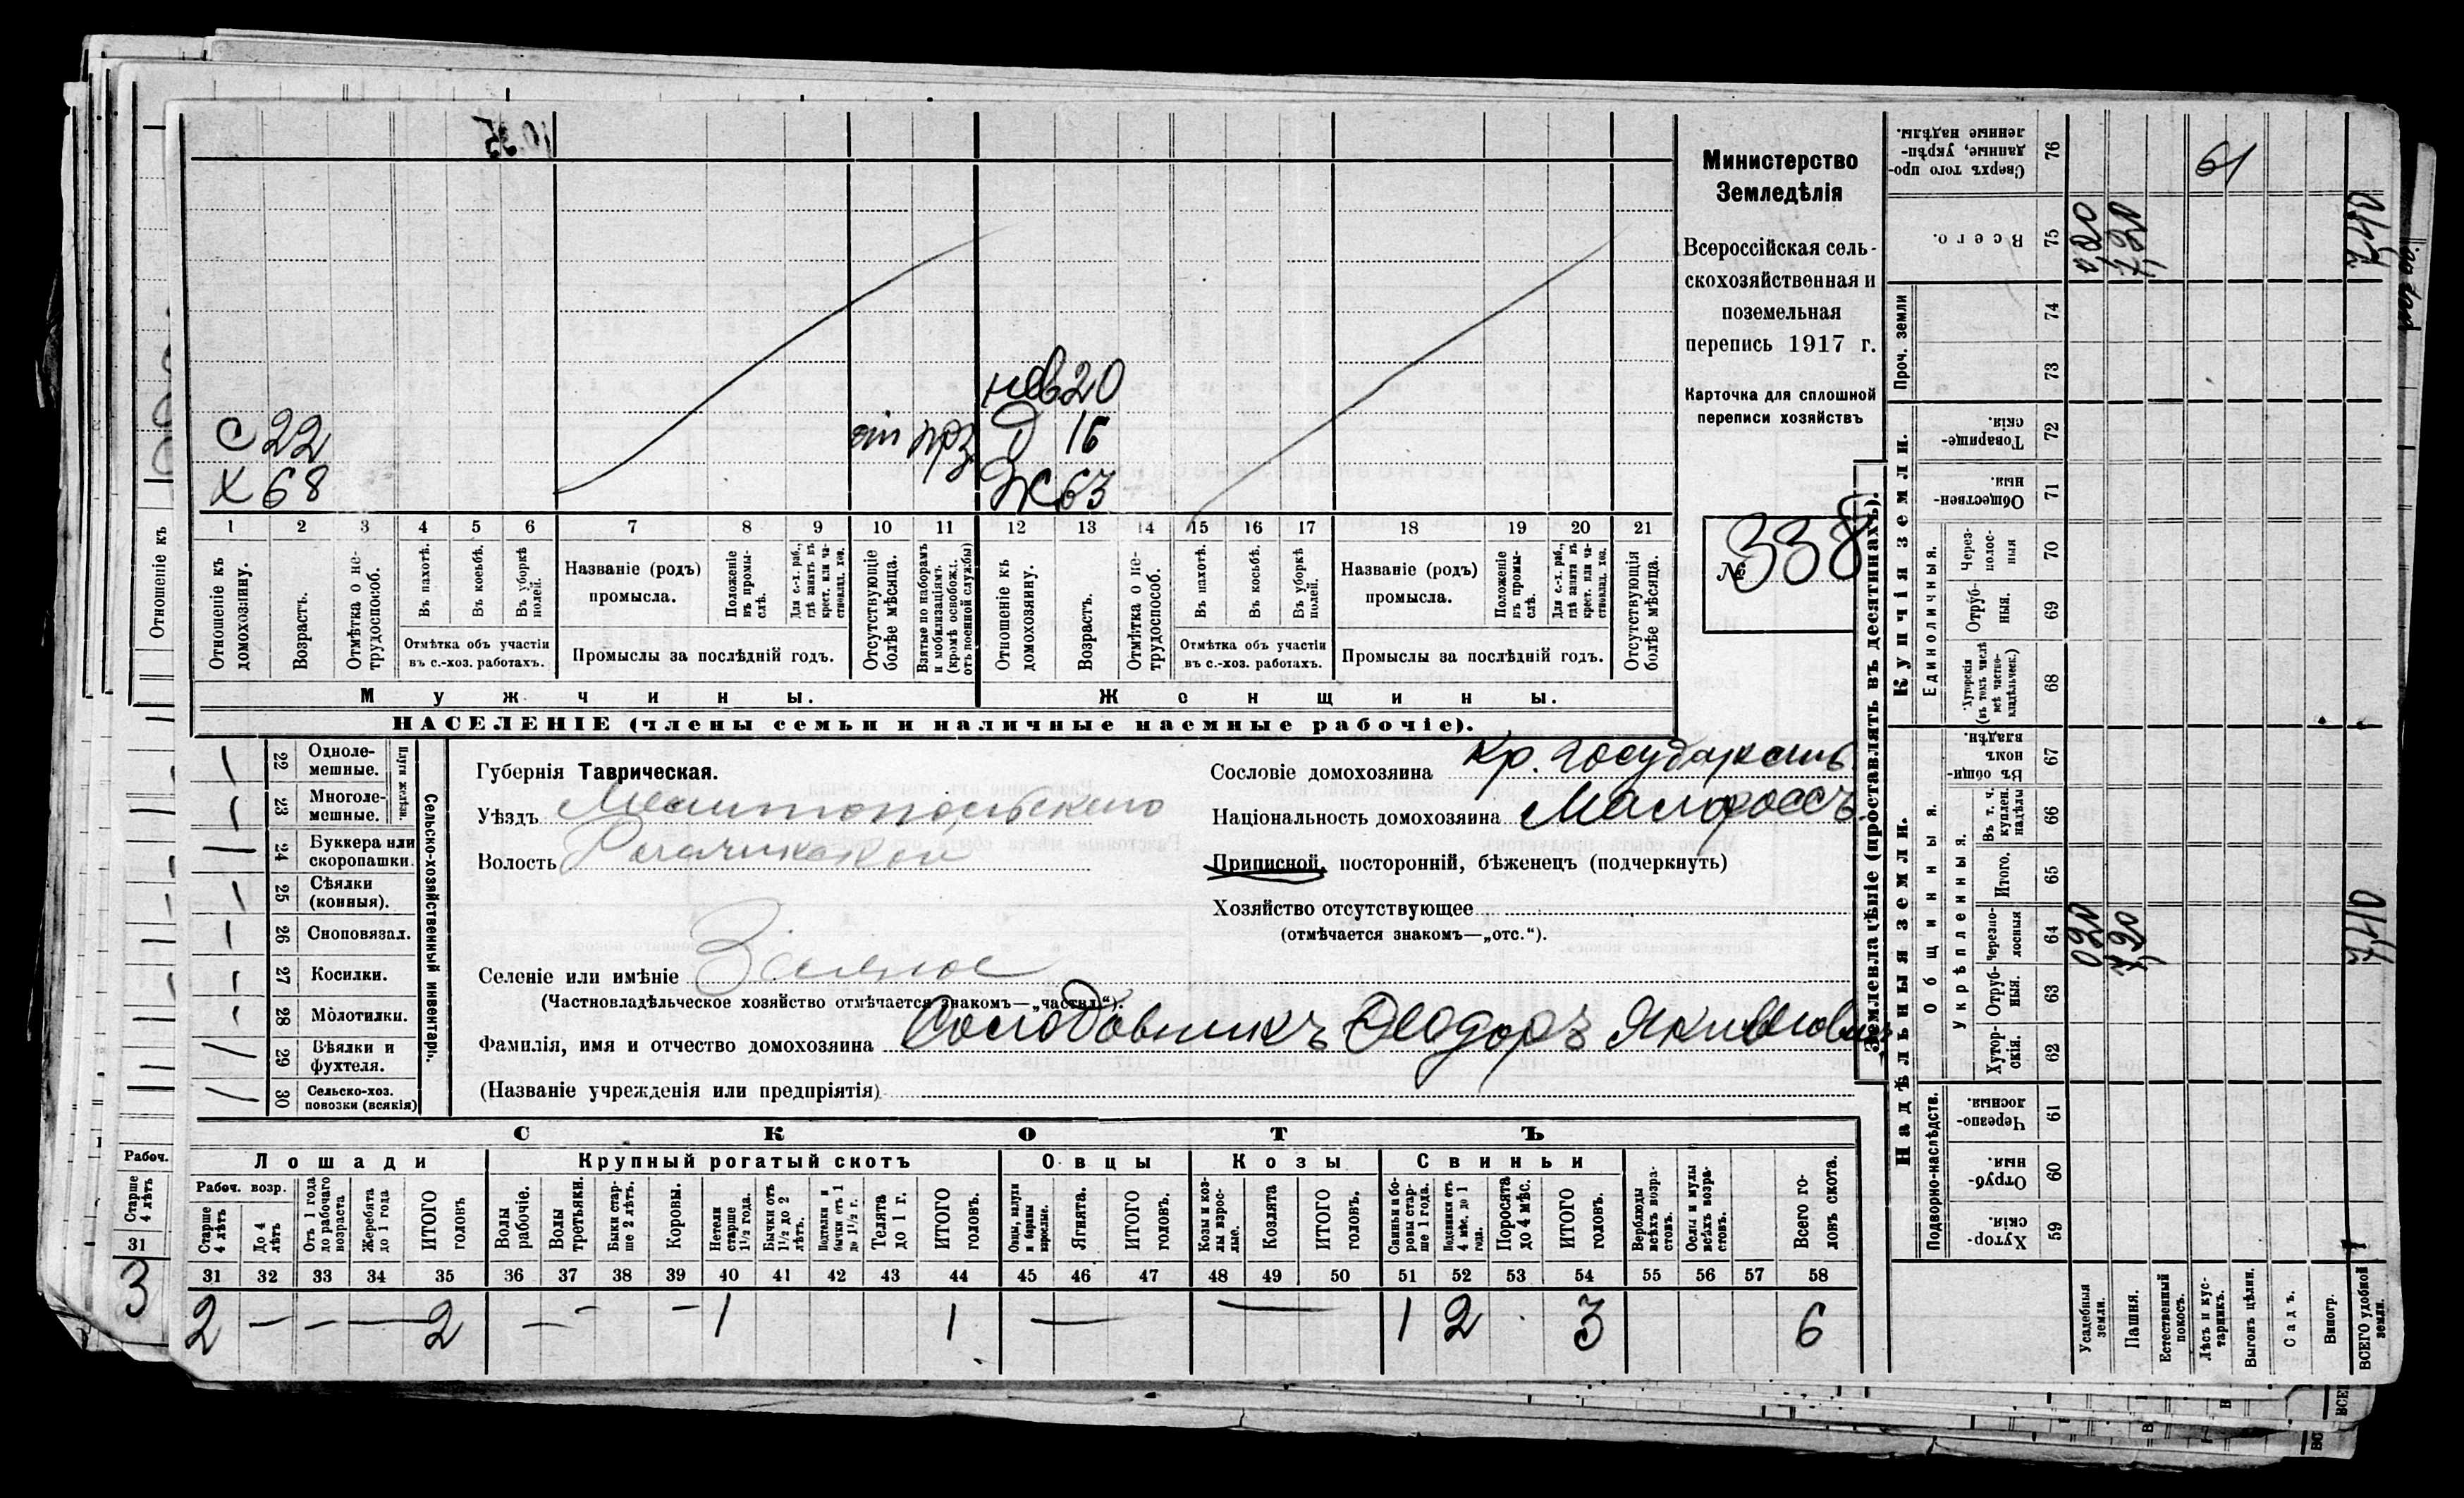 Министерство
Земледѣлія
Всероссійская сель-
скохозяйственная и
поземельная
перепись 1917 г.
Карточка для сплошной
переписи хозяйствъ
№ 338
нев 20
С 22 от прз Д 16
Х 68 Ж 63
1 2 3 4 5 6 7 8 9 10 11 12 13 14 15 16 17 18 19 20 21
Отношеніе къ домохозяину.
Возрастъ.
Отмѣтка о не-трудоспособ.
Въ пахотѣ.
Въ косьбѣ.
Въ уборкѣ полей.
Отмѣтка объ участіи
въ с.-хоз. работахъ.
Названіе (родъ)
промысла.
Положеніе въ промы-слѣ.
Для с.-х. раб., гдѣ занятъ въ крест. или ча-стновлад. хоз.
Промыслы за послѣдній годъ.
Отсутствующіе болѣе мѣсяца.
Взятые по наборамъ и мобилизаціямъ (кромѣ освобожд. отъ военной службы)
Отношеніе къ домохозяину.
Возрастъ.
Отмѣтка о не-трудоспособ.
Въ пахотѣ.
Въ косьбѣ.
Въ уборкѣ полей.
Отмѣтка объ участіи
въ с.-хоз. работахъ.
Названіе (родъ)
промысла.
Положеніе въ промы-слѣ.
Для с.-х. раб., гдѣ занята въ крест. или ча-стновлад. хоз.
Промыслы за послѣдній годъ.
Отсутствующія болѣе мѣсяца.
Мужчины. Женщины.
НАСЕЛЕНІЕ (члены семьи и наличные наемные рабочіе).
Сельско-хозяйственный инвентарь.
Плуги желѣз.
22 Одноле-мешные.
23 Многоле-мешные.
24 Буккера или скоропашки.
25 Сѣялки (конныя).
26 Сноповязал.
27 Косилки.
28 Молотилки.
29 Вѣялки и фухтеля.
30 Сельско-хоз. повозки (всякія)
Губернія Таврическая.
Уѣздъ Мелитопольскаго
Волость Рогачикской
Селеніе или имѣніе Зеленое
(Частновладѣльческое хозяйство отмѣчается знакомъ—„частвл“).
Фамилія, имя и отчество домохозяина Солодовникъ Ѳеодоръ Якимовичъ
(Названіе учрежденія или предпріятія)
Сословіе домохозяина кр. государств
Національность домохозяина Малороссъ
Приписной, посторонній, бѣженецъ (подчеркнуть)
Хозяйство отсутствующее
(отмѣчается знакомъ—„отс.“).
СКОТЪ
Лошади Крупный рогатый скотъ Овцы Козы Свиньи
Рабоч. возр.
Старше 4 лѣтъ
До 4 лѣтъ
Отъ 1 года до рабочаго возраста
Жеребята до 1 года
ИТОГО головъ
Волы рабочіе.
Волы третьяки.
Быки стар-ше 2 лѣтъ.
Коровы.
Нетели старше 1½ года.
Бычки отъ 1½ до 2 лѣтъ.
Подтелки и бычки отъ 1 до 1½ г.
Телята до 1 г.
ИТОГО головъ.
Овцы, валухи и бараны взрослые.
Ягнята.
ИТОГО головъ.
Козы и коз-лы взрос-лые.
Козлята
ИТОГО головъ.
Свиньи и бо-ровы стар-ше 1 года.
Подсвинки отъ 4 мѣс. до 1 года.
Поросята до 4 мѣс.
ИТОГО головъ.
Верблюды всѣхъ возра-стовъ.
Ослы и мулы всѣхъ возра-стовъ.
Всего го-ловъ скота.
31 32 33 34 35 36 37 38 39 40 41 42 43 44 45 46 47 48 49 50 51 52 53 54 55 56 57 58
2 — — — 2 — — — 1 1 — — 1 2 3 6
Землевладѣніе (проставлять въ десятинахъ).
Надѣльныя земли.
Купчія земли.
Проч. земли
Подворно-наслѣдств.
Общинныя.
Укрѣпленныя.
Единоличныя.
76 Сверхъ того про-данные, укрѣп-ленные надѣлы.
75 Всего.
74
73
72 Товарище-скія
71 Обществен-ныя.
70 Черезполос-ныя
69 Отруб-ныя.
68 Хуторскія (въ томъ числѣ всѣ частно-владѣльческ.)
67 Въ общин-номъ владѣн.
66 Въ т. ч. куплен. надѣлы
65 Итого.
64 Черезпо-лосныя
63 Отруб-ныя.
62 Хутор-скія.
61 Черезпо-лосныя.
60 Отруб-ныя.
59 Хутор-скія.
Усадебныя земли.
Пашня.
Естественный покосъ.
Лѣсъ и кус-тарникъ.
Выгонъ цѣлин.
Садъ.
Виногр.
ВСЕГО удобной земли.
0,20
7,20
7,40
0,20
7,20
7,40
61
Отношеніе къ
Рабоч.
Старше 4 лѣтъ
31
3